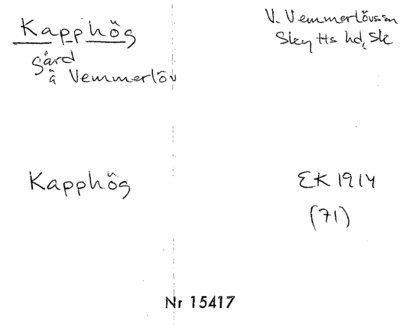 Kapphög
V. Vemmerlövs sn
gård
Skytts hd, Sk
å Vemmerlöv
Kapphög
EK 1914
(71)
Nr 15417